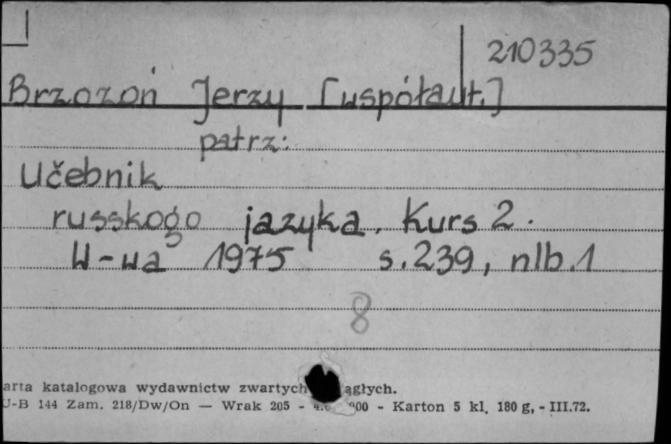 210335
Brzozoń Jerzy [współaut.]
patrz:
Učebnik
russkogo jazyka. Kurs 2.
W-wa 1975 s. 239, nlb. 1
8
arta katalogowa wydawnictw zwartych ągłych.
U-B 144 Zam. 218/Dw/On — Wrak 205 - - Karton 5 kl. 180 g, - III.72.